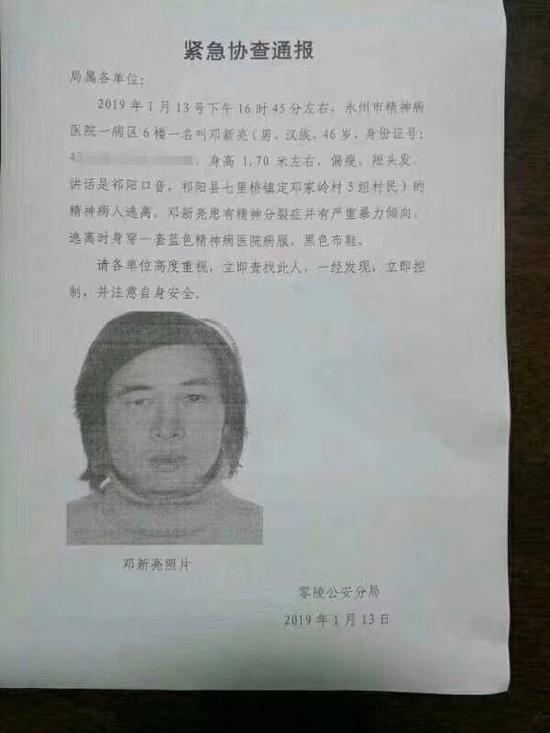 紧急协查通报
局属各单位：
2019年1月13号下午16时45分左右，永州市精神病
医院一病区6楼一名叫邓新亮（男、汉族、46岁，身份证号：
4
，身高1.70米左右，偏瘦，短头发，
讲话是祁阳口音，祁阳县七里桥镇定邓家岭村5组村民）的
精神病人逃离。邓新亮患有精神分裂症并有严重暴力倾向。
逃离时身穿一套蓝色精神病医院病服、黑色布鞋。
请各单位高度重视，立即查找此人，一经发现，立即控
制，并注意自身安全。
邓新亮照片
零陵公安分局
2019年1月13日